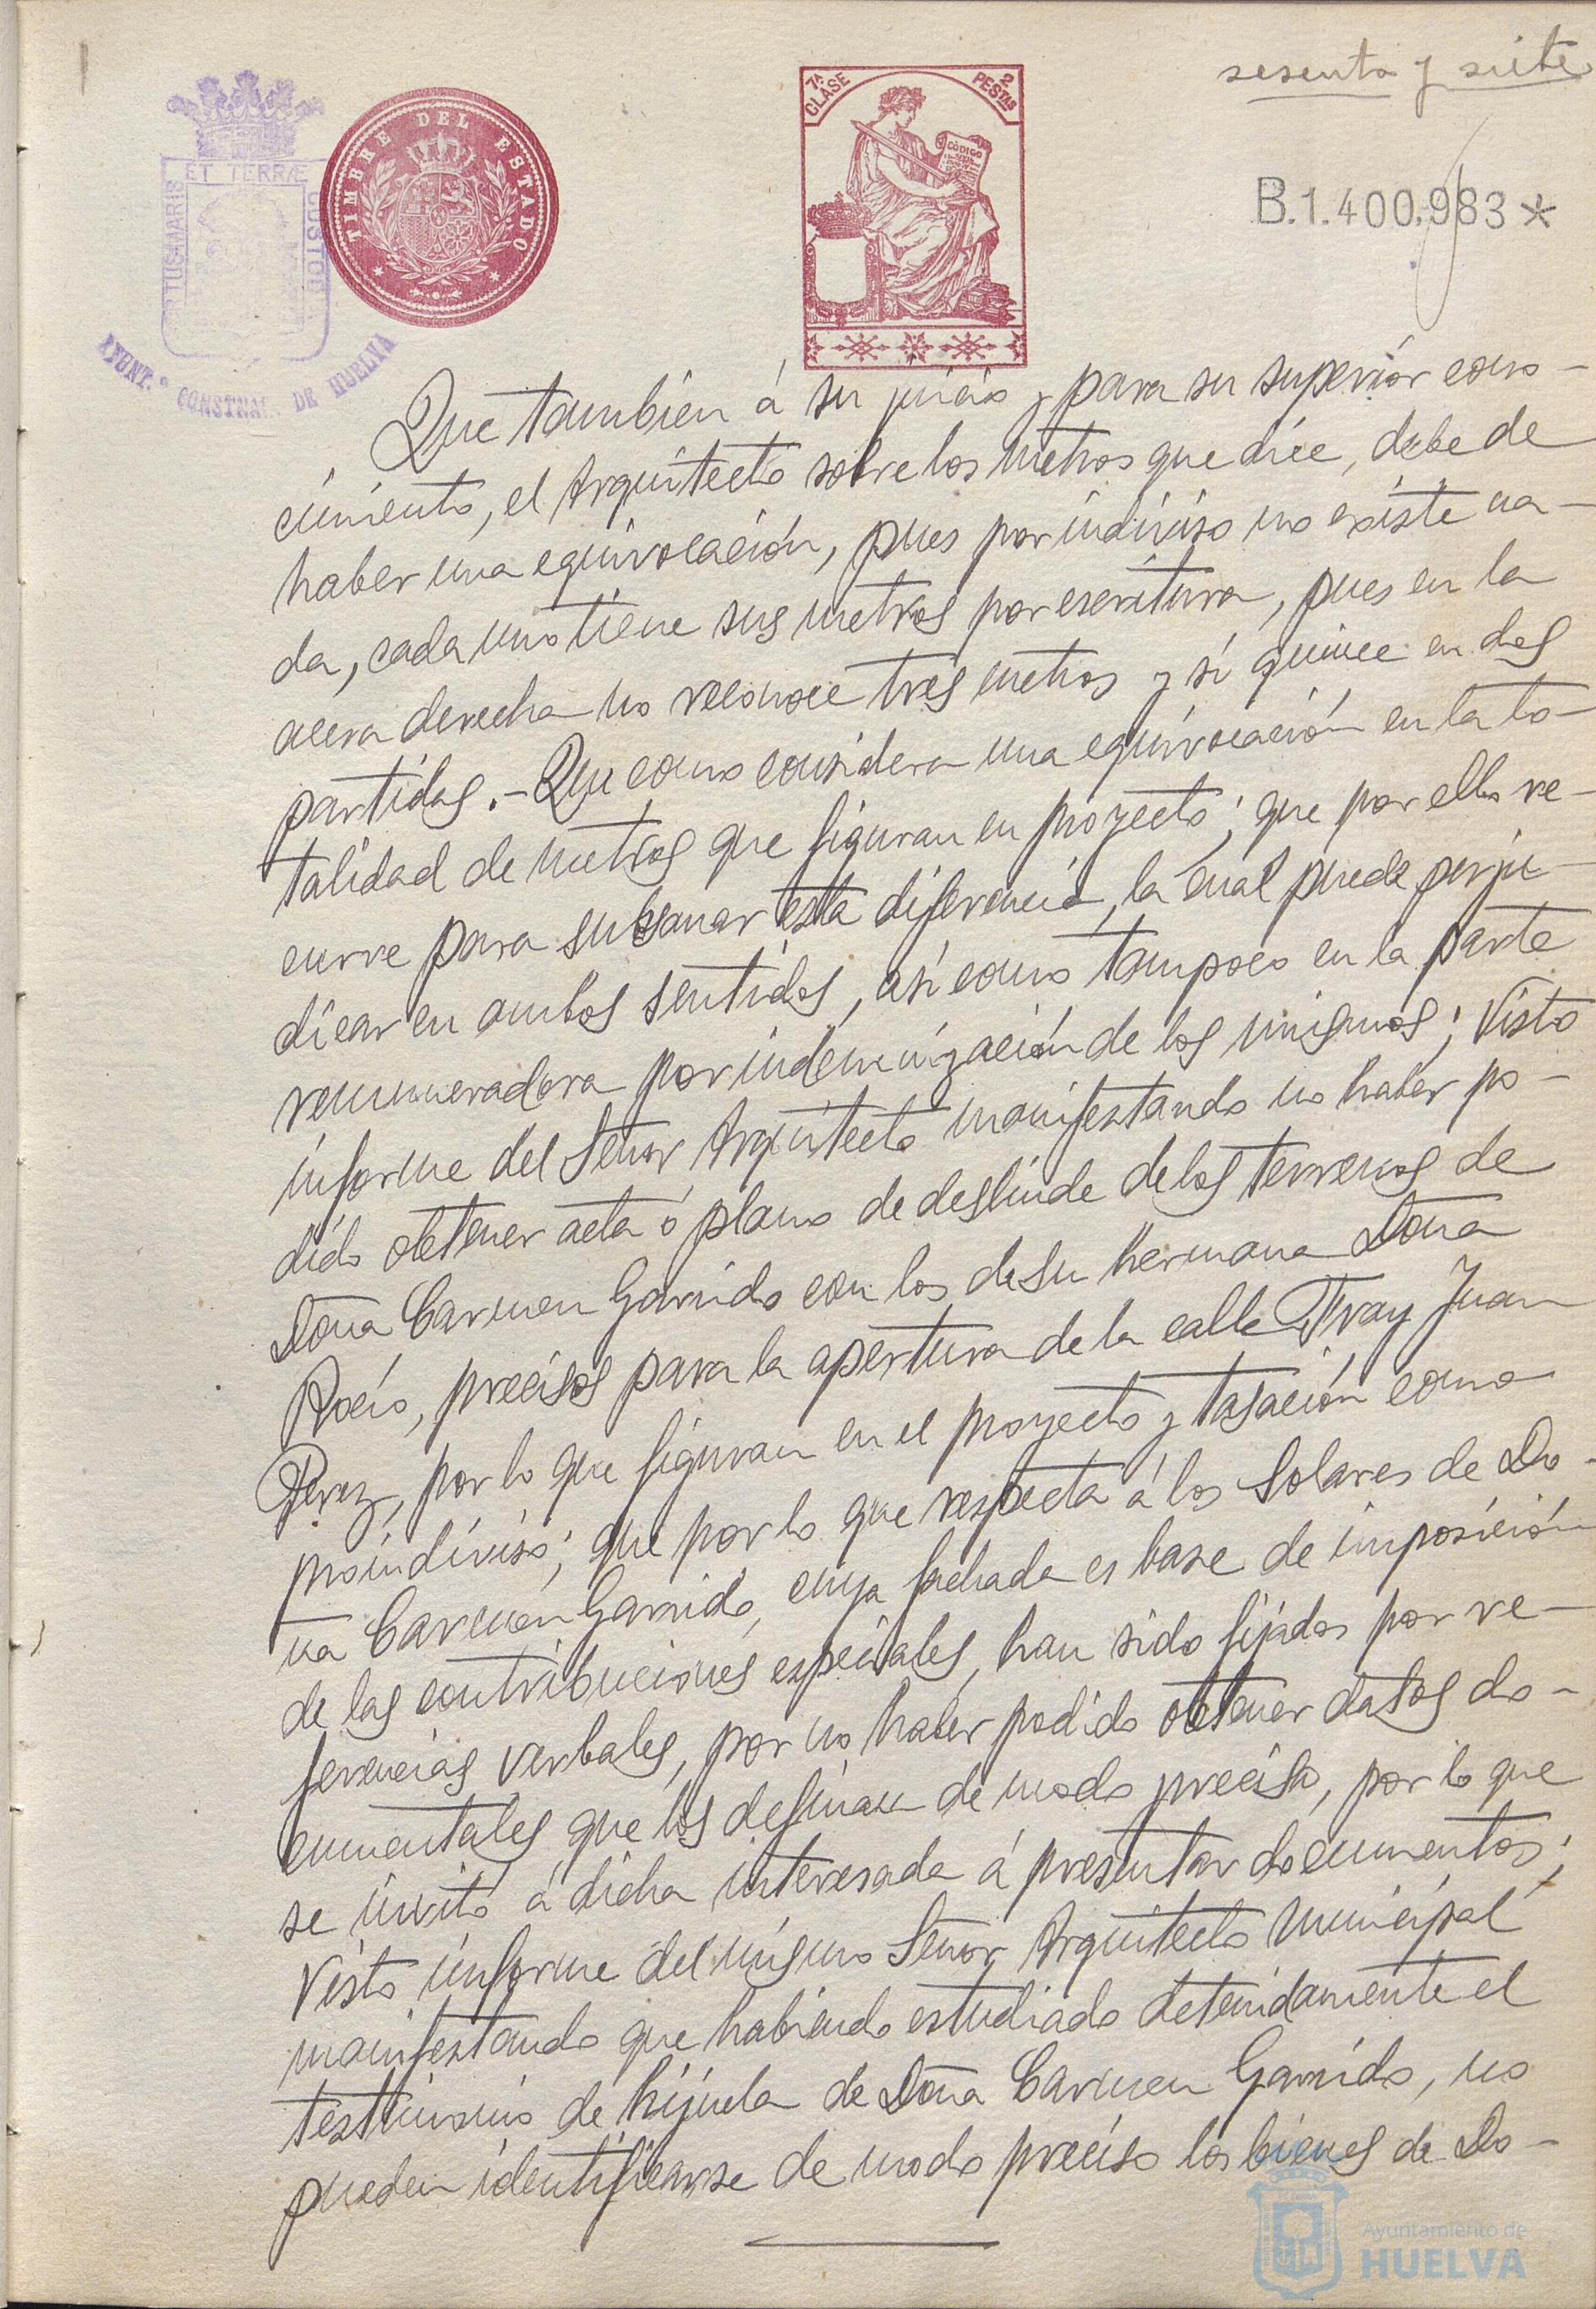 sesenta y siete
7ª CLASE
2 PESTAS
CÓDIGO
TIMBRE DEL ESTADO
ET TERRÆ CUSTODIA
PORTUS MARIS
AYUNT.º CONSTNAL. DE HUELVA
B.1.400.983 *
Que también á su juicio y para su superior cono-
cimiento, el Arquitecto sobre los metros que dice, debe de
haber una equivocación, pues por indiviso no existe na-
da, cada uno tiene sus metros por escritura, pues en la
acera derecha no reconoce tres metros y si quince en dos
partidas.- Que como considera una equivocación en la to-
talidad de metros que figuran en proyecto; que por ello re-
curre para subsanar esta diferencia, la cual puede perju-
dicar en ambos sentidos, así como tampoco en la parte
remuneradora por indemnización de los mismos; Visto
informe del Señor Arquitecto manifestando no haber po-
dido obtener acta ó plano de deslinde de los terrenos de
Doña Carmen Garrido con los de su hermana Doña
Rocío, precisos para la apertura de la calle Fray Juan
Perez, por lo que figuran en el proyecto y tasación como
proindiviso; que por lo que respecta á los solares de Do-
ña Carmen Garrido, cuya fachada es base de imposición
de las contribuciones especiales, han sido fijados por re-
ferencias verbales, por no haber podido obtener datos do-
cumentales que los definan de modo preciso, por lo que
se invitó á dicha interesada á presentar documentos;
Visto informe del mismo Señor Arquitecto Municipal
manifestando que habiendo estudiado detenidamente el
testimonio de hijuela de Doña Carmen Garrido, no
pueden identificarse de modo preciso los bienes de Do-
Ayuntamiento de
HUELVA